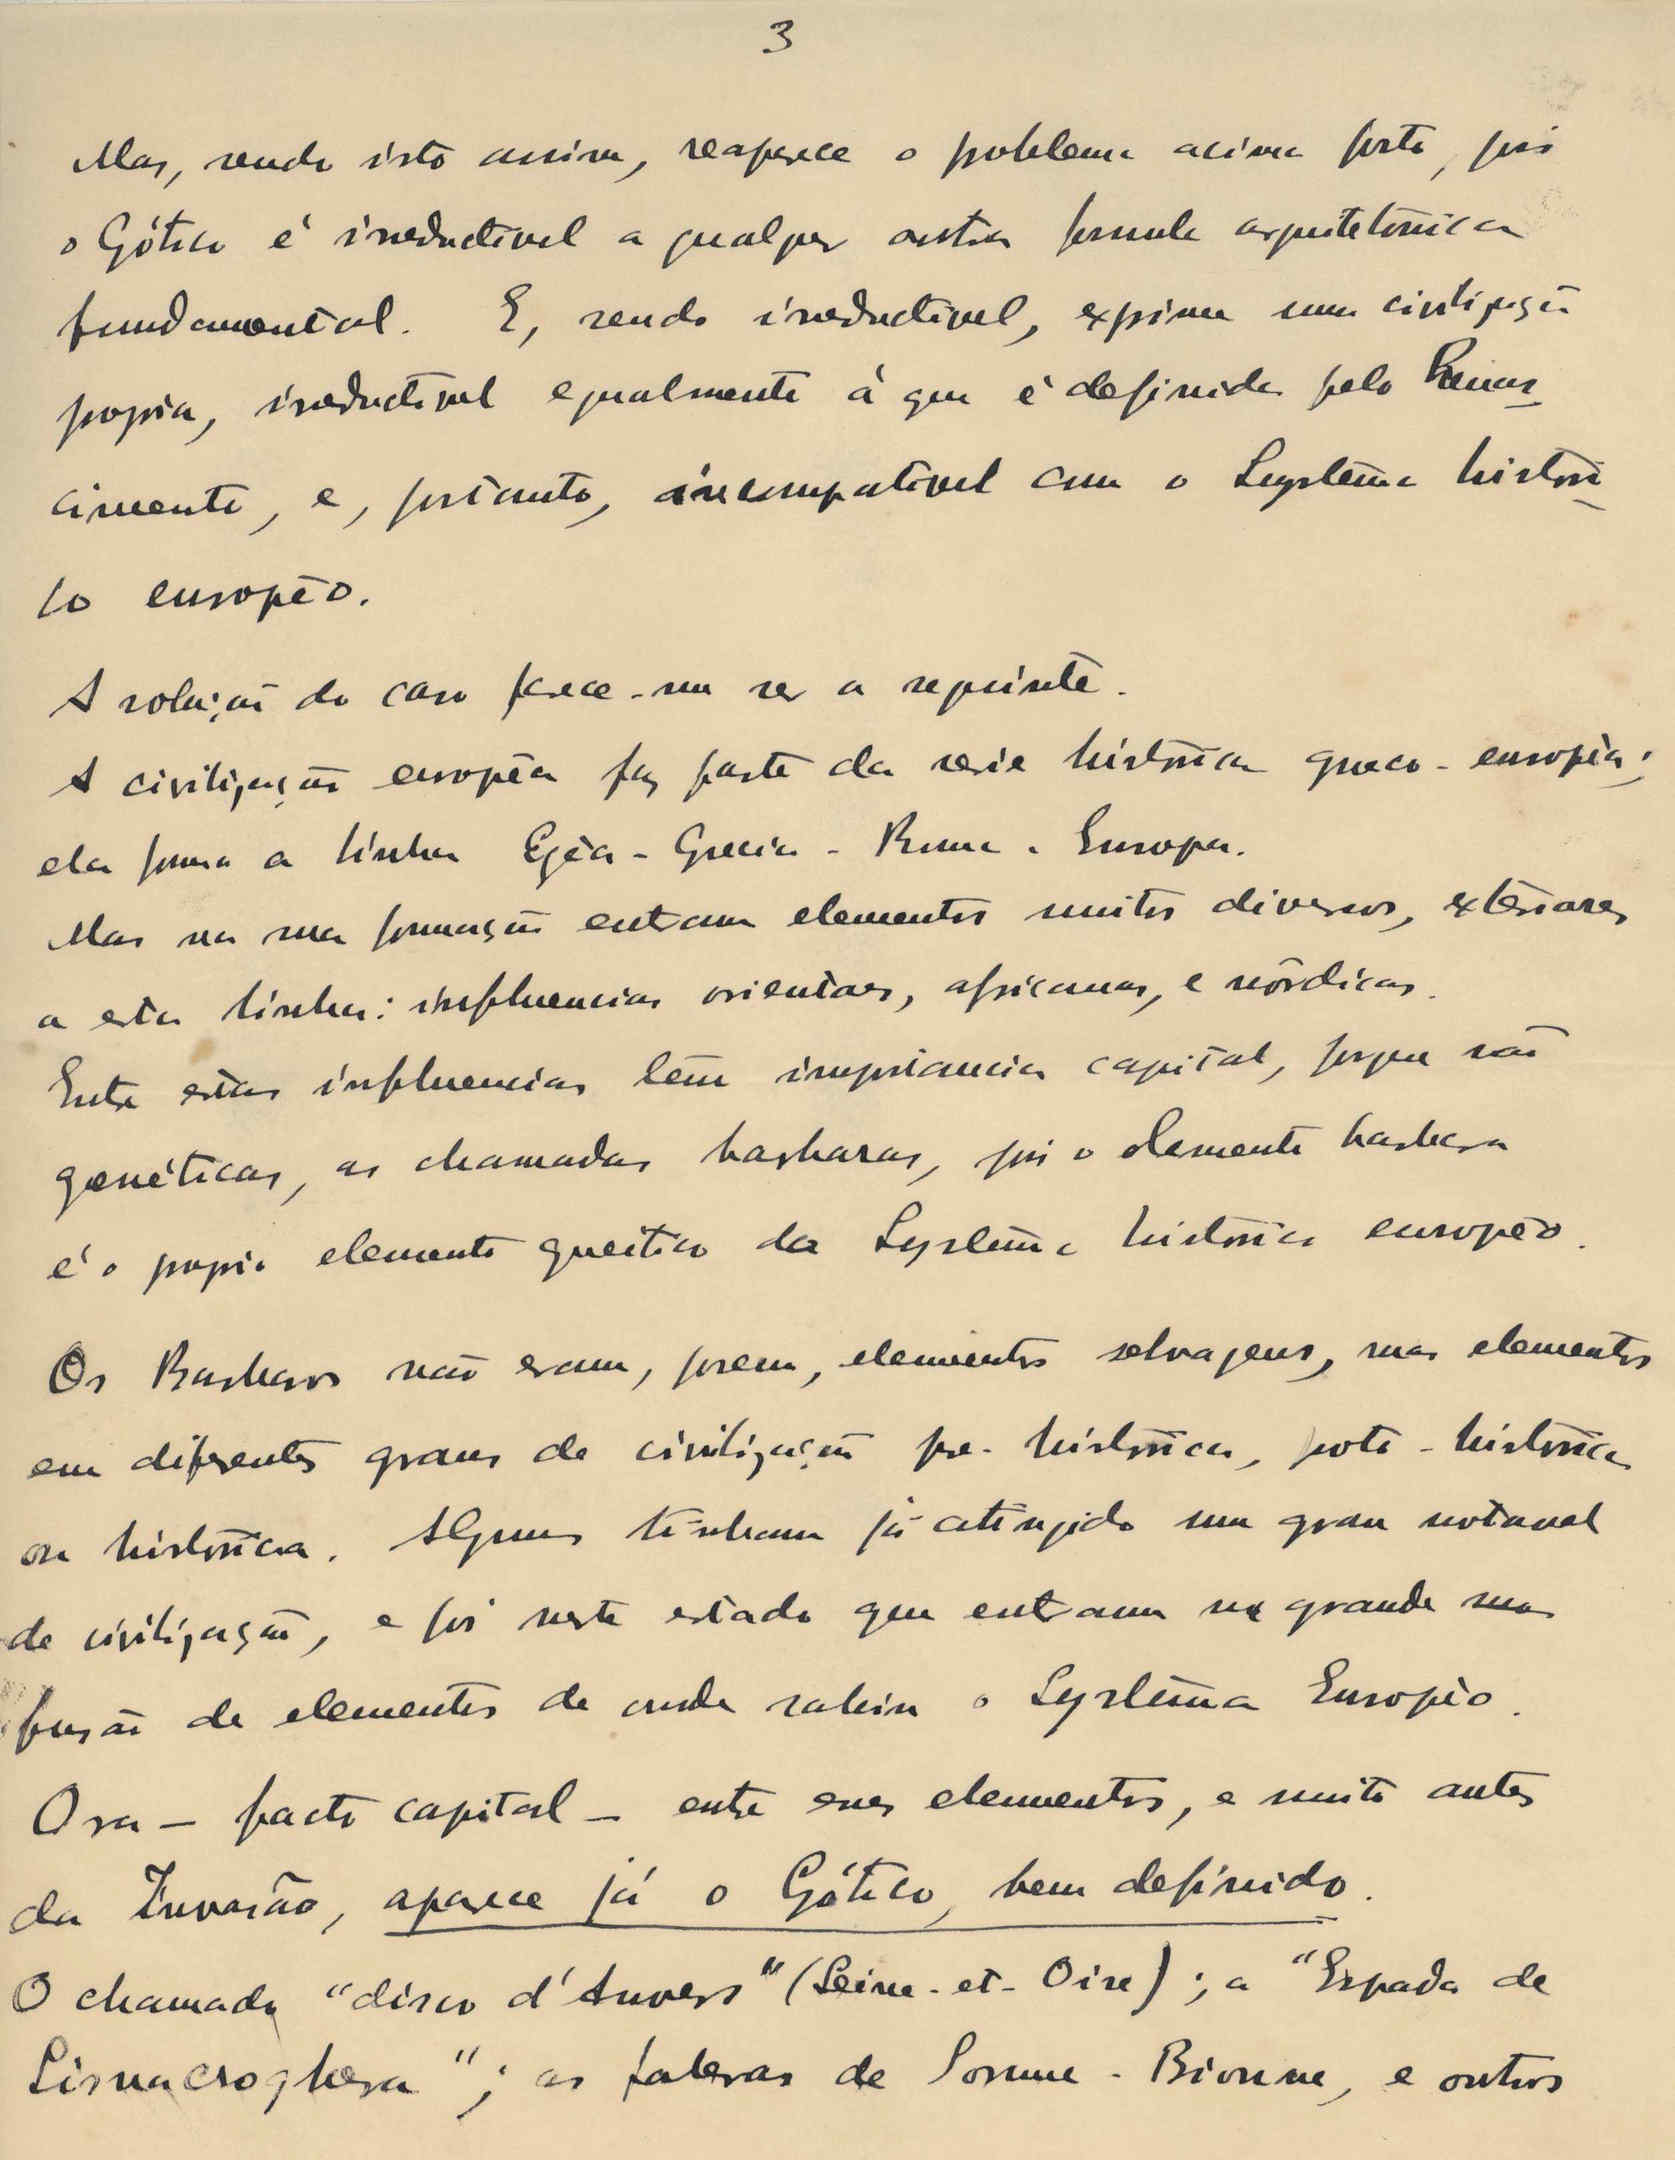 3
Mas, sendo isto assim, reaparece o problema acima posto, pois
o Gótico é irreductivel a qualquer outra formula arquitetónica
fundamental. E, sendo irreductivel, exprime uma civilização
propria, irreductivel egualmente á que é definida pelo Renas-
cimento, e, portanto, incompativel com o Systema histori-
co europeo.
A solução do caso parece-me ser a seguinte.
A civilização européa faz parte da serie histórica greco-européa;
ela forma a linha Egéa - Grecia - Roma - Europa.
Mas na sua formação entram elementos muitos diversos, exteriores
a esta linha: influencias orientaes, africanas, e nórdicas.
Entre estas influencias têm importancia capital, porque são
genéticas, as chamadas barbaras, pois o elemento barbaro
é o proprio elemento genético do Systema histórico européo.
Os Barbaros não eram, porem, elementos selvagens, mas elementos
em diferentes graus de civilização pre-histórica, proto-histórica
ou histórica. Alguns tinham já atingido um grau notavel
de civilização, e foi neste estado que entraram na grande mas
fusão de elementos de onde sahiu o Systema Européo.
Ora — facto capital — entre esses elementos, e muito antes
da Invasão, aparece já o Gótico, bem definido.
O chamado "disco d'Auvers" (Seine-et-Oise); a "Espada de
Lisnacroghera"; as faleras de Somme-Bionne, e outros